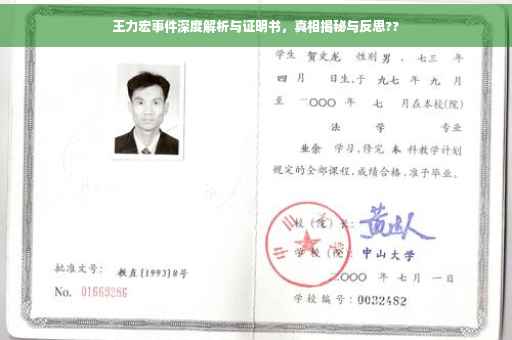 王力宏事件深度解析与证明书，真相揭秘与反思??
学生 贺文龙 性别 男 ，七三 年
四 月 日生,于 九七 年 九 月
至 二〇〇〇 年 七 月在本校(院)
法 学 专业
业余 学习,修完 本 科教学计划
规定的全部课程,成绩合格,准予毕业。
校 (院) 长:
学 校 (院): 中山大学
二〇〇〇 年 七 月 一 日
批准文号: 教直[1993]8号
No. 01669286
学校编号: 0032482